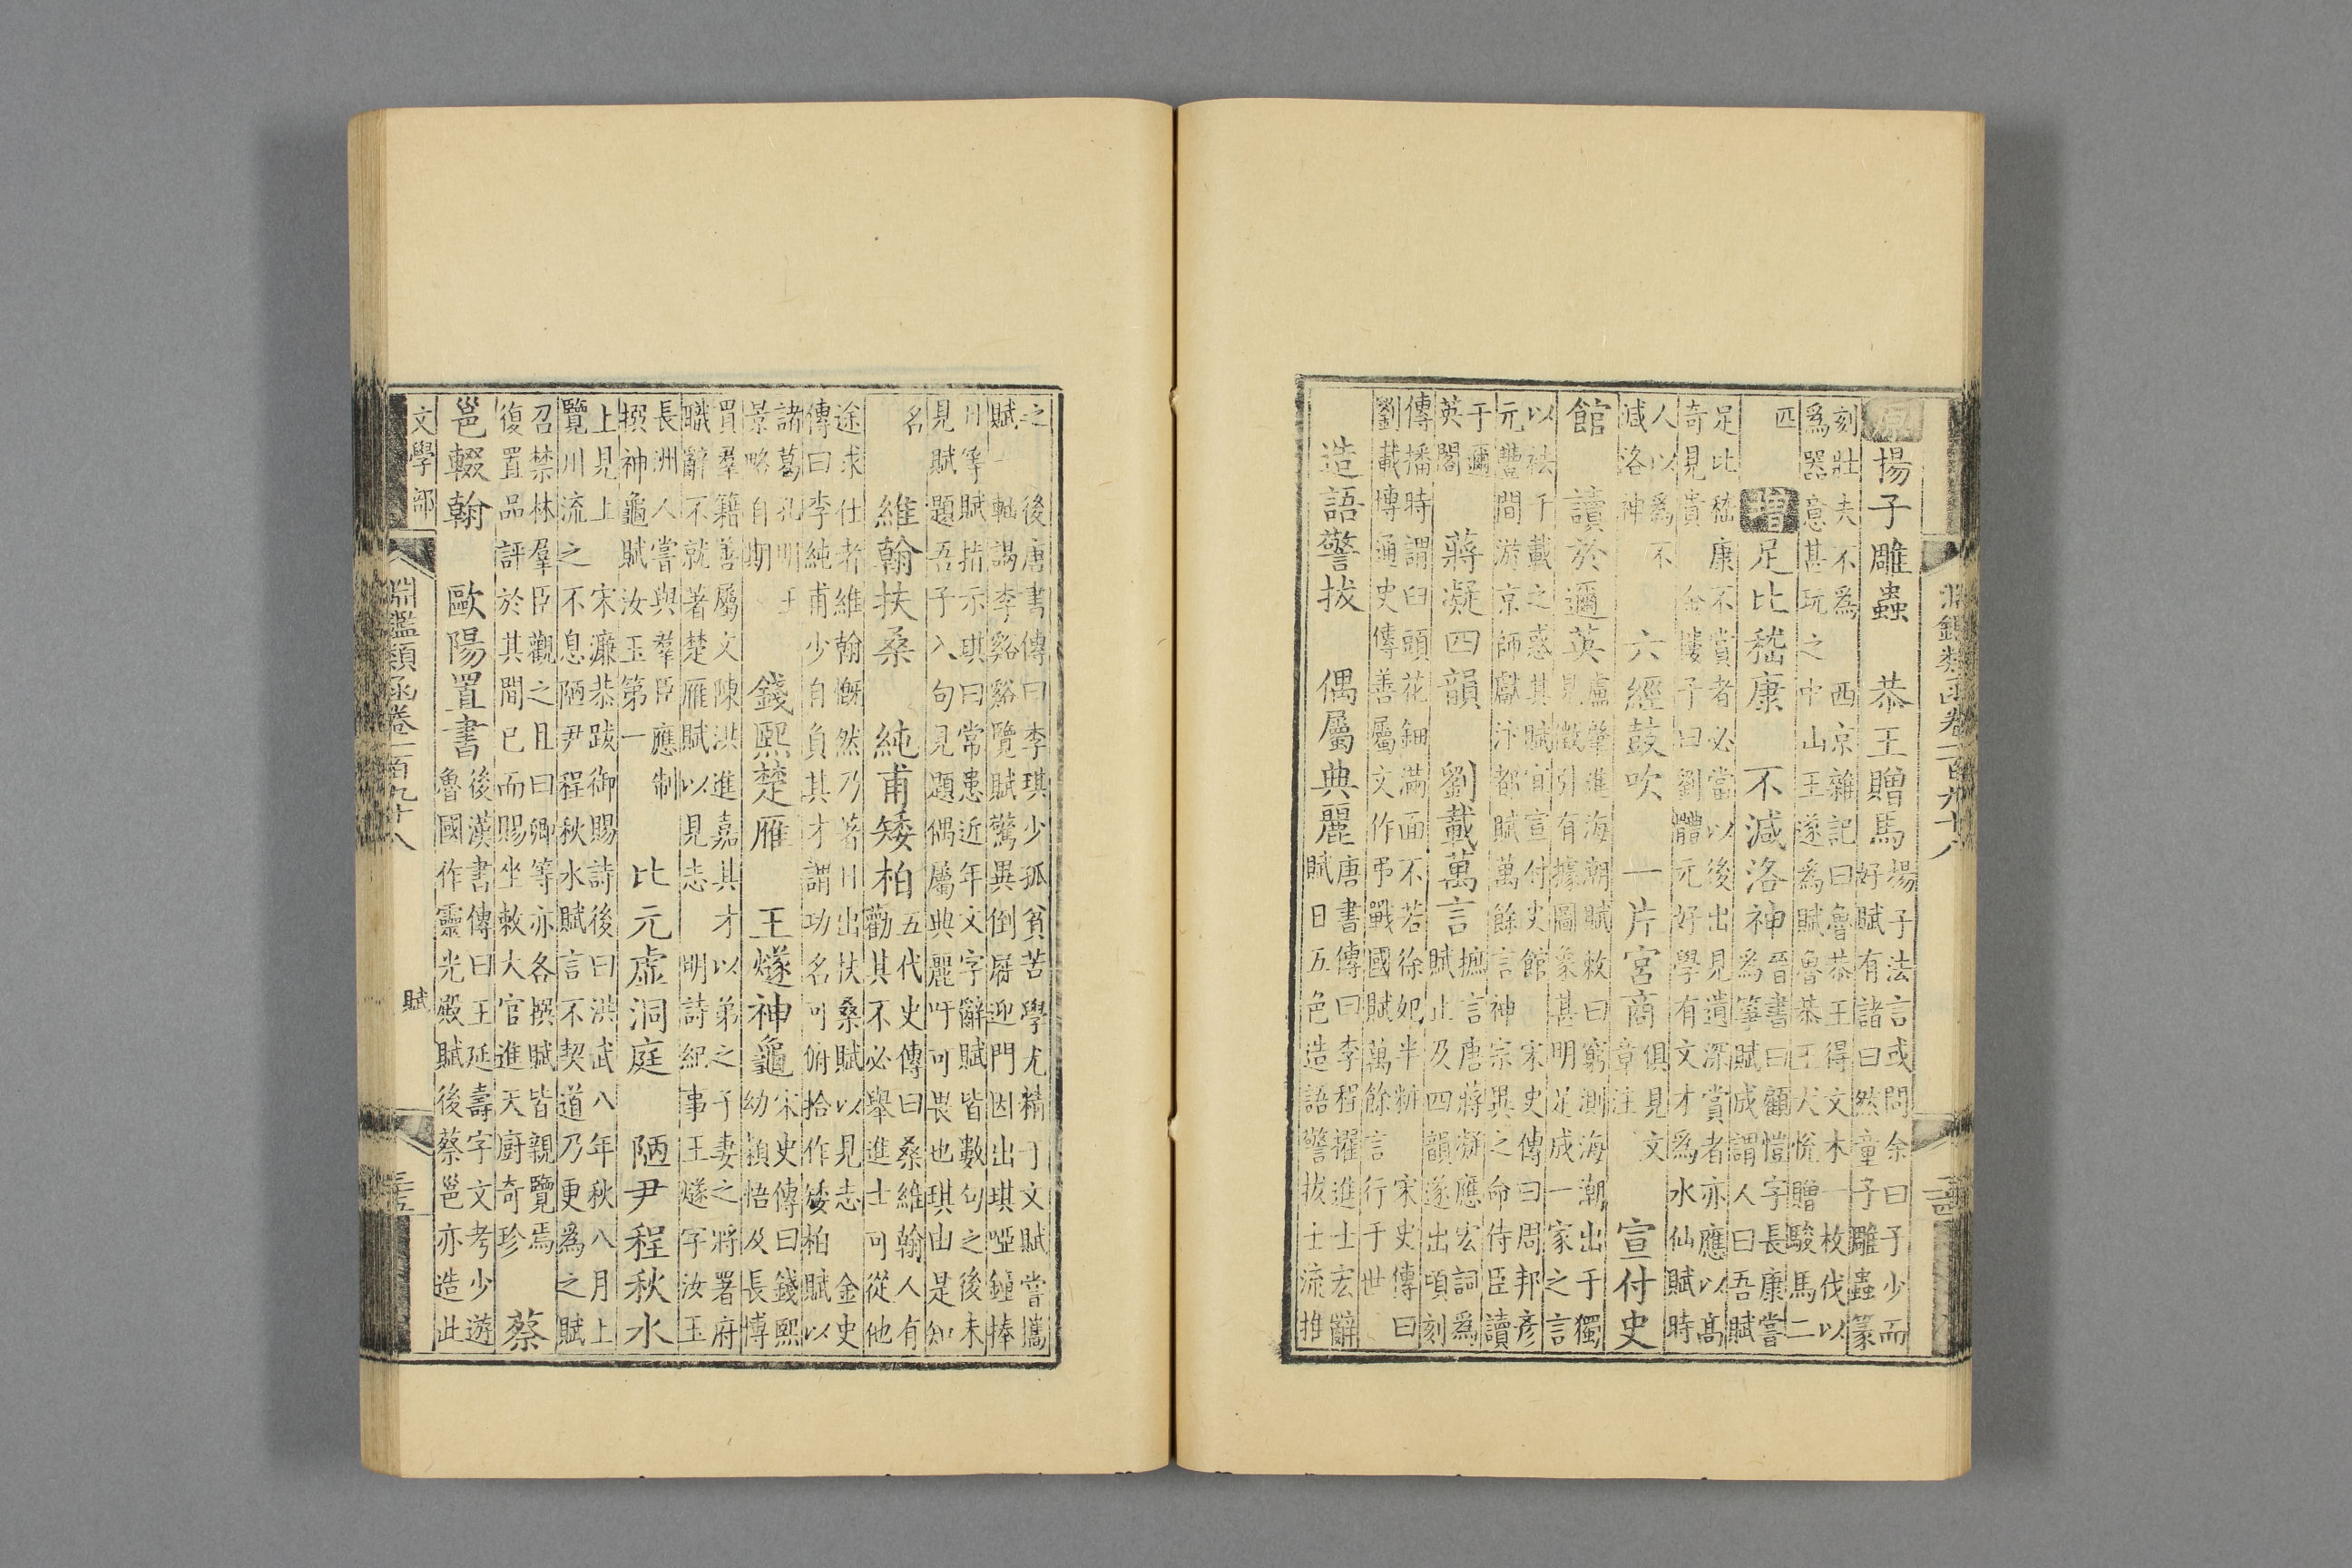 淵鑑類函卷一百九十八
原 揚子雕蟲 恭王贈馬
揚子法言或問余曰子少而
好賦有諸曰然童子雕蟲篆
刻壯夫不爲 西京雜記曰魯恭王得文木一枚伐以
爲器意甚玩之 中山王遂爲賦魯恭王大悅贈駿馬二
匹 增 足比嵇康 不減洛神
晉書曰顧愷字長康嘗
爲箏賦成謂人曰吾賦
足比嵇康不賞者必當以後出見遺深賞者亦應以高
奇見貴 金樓子曰劉體元好學有文才爲水仙賦時
人以爲不
減洛神
六經鼓吹 一片宮商
俱見文
章注
宣付史
館 讀於邇英
盧肇進海潮賦敕曰窮測海潮出于獨
見徵引有據圖象甚明足成一家之言
以祛千載之惑其賦宜宣付史館 宋史傳曰周邦彥
元豐間游京師獻汴都賦萬餘言神宗異之命侍臣讀
于邇
英閣
蔣凝四韻 劉載萬言
摭言唐蔣凝應宏詞爲
賦止及四韻遂出頃刻
傳播時謂曰頭花鈿滿面不若徐妃半粧 宋史傳曰
劉載博通史傳善屬文作弔戰國賦萬餘言行于世
造語警拔 偶屬典麗
唐書傳曰李程擢進士宏辭
賦日五色造語警拔士流推
之 後唐書傳曰李琪少孤貧苦學尤精于文賦嘗攜
賦一軸謁李谿谿覽賦驚異倒屣迎門因出琪啞鐘捧
日等賦指示琪曰常患近年文字辭賦皆數句之後未
見賦題吾子入句見題偶屬典麗吁可畏也琪由是知
名 維翰扶桑 純甫矮柏
五代史傳曰桑維翰人有
勸其不必舉進士可從他
途求仕者維翰慨然乃著日出扶桑賦以見志 金史
傳曰李純甫少自負其才謂功名可俯拾作矮柏賦以
諸葛孔明王
景略自期
錢熙楚雁 王燧神龜
宋史傳曰錢熙
幼穎悟及長博
買羣籍善屬文陳洪進嘉其才以弟之子妻之將署府
職辭不就著楚雁賦以見志 明詩紀事王燧字汝玉
長洲人嘗與羣臣應制
撰神龜賦汝玉第一
比元虛洞庭 陋尹程秋水
上見上 宋濂恭跋御賜詩後曰洪武八年秋八月上
覽川流之不息陋尹程秋水賦言不契道乃更爲之賦
召禁林羣臣觀之且曰卿等亦各撰賦皆親覽焉
復置品評於其間已而賜坐敕大官進天廚奇珍
蔡
邕輟翰 歐陽置書
後漢書傳曰王延壽字文考少遊
魯國作靈光殿賦後蔡邕亦造此
文學部 淵鑑類函卷一百九十八 賦 三五